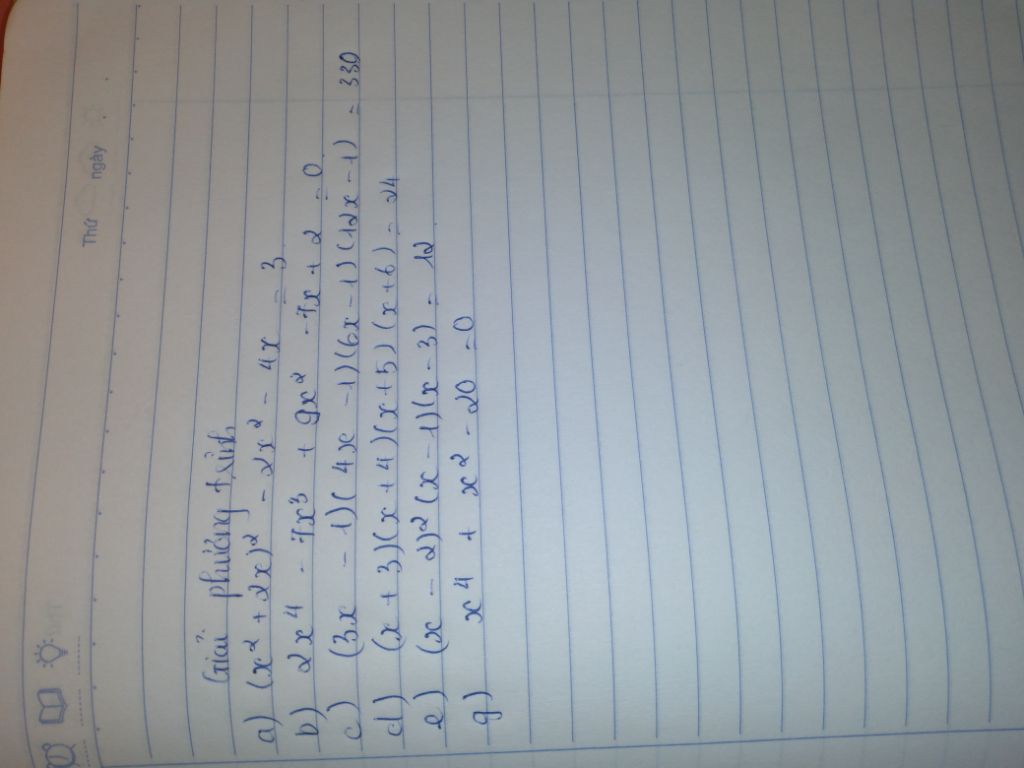 Thứ ngày
Giải phương trình
a) (x² + 2x)² - 2x² - 4x = 3
b) 2x⁴ - 7x³ + 9x² - 7x + 2 = 0
c) (3x - 1)(4x - 1)(6x - 1)(12x - 1) = 330
d) (x + 3)(x + 4)(x + 5)(x + 6) = 24
e) (x - 2)²(x - 1)(x - 3) = 12
g) x⁴ + x² - 20 = 0